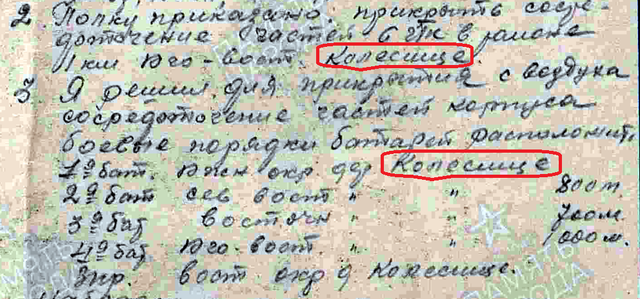 2 Полку приказано прикрыть сосре-
доточение частей 6 тк в районе
1 км юго-вост. Колесище.
3 Я решил для прикрытия с воздуха
сосредоточение частей корпуса
боевые порядки батарей расположить
1я бат. южн окр дер Колесище
2я бат сев вост " " 800 м
3я бат восточн " " 700 м.
4я бат юго-вост. " " 1000 м.
зпр. вост окр д Колесище.
ПАМЯТЬ